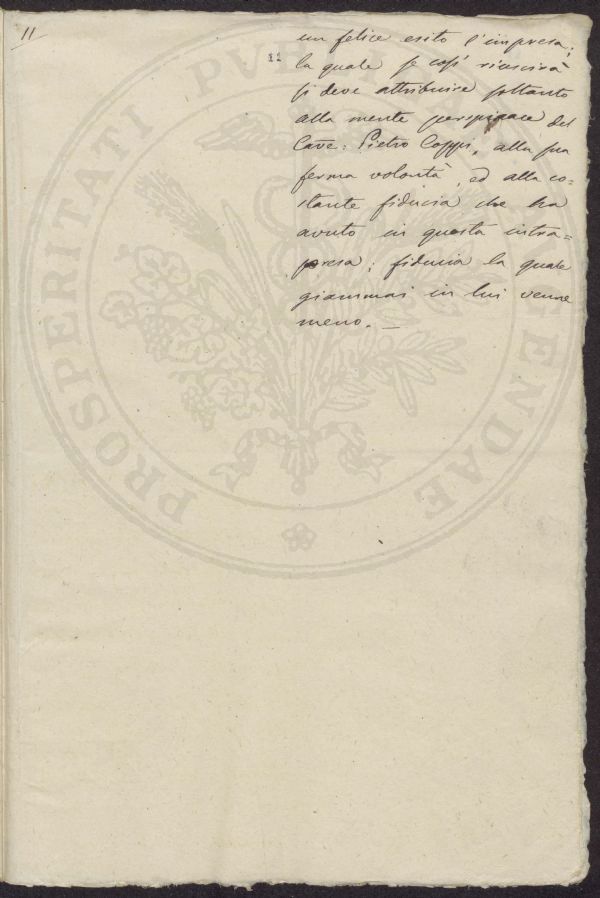 11
82
un felice esito l'impresa;
la quale se così riuscirà
si deve attribuire soltanto
alla mente perspicace del
Cave: Pietro Coppi, alla sua
ferma volontà, ed alla co=
stante fiducia che ha
avuto in questa intra=
presa; fiducia la quale
giammai in lui venne
meno. —
PROSPERITATI PVB AVGENDAE